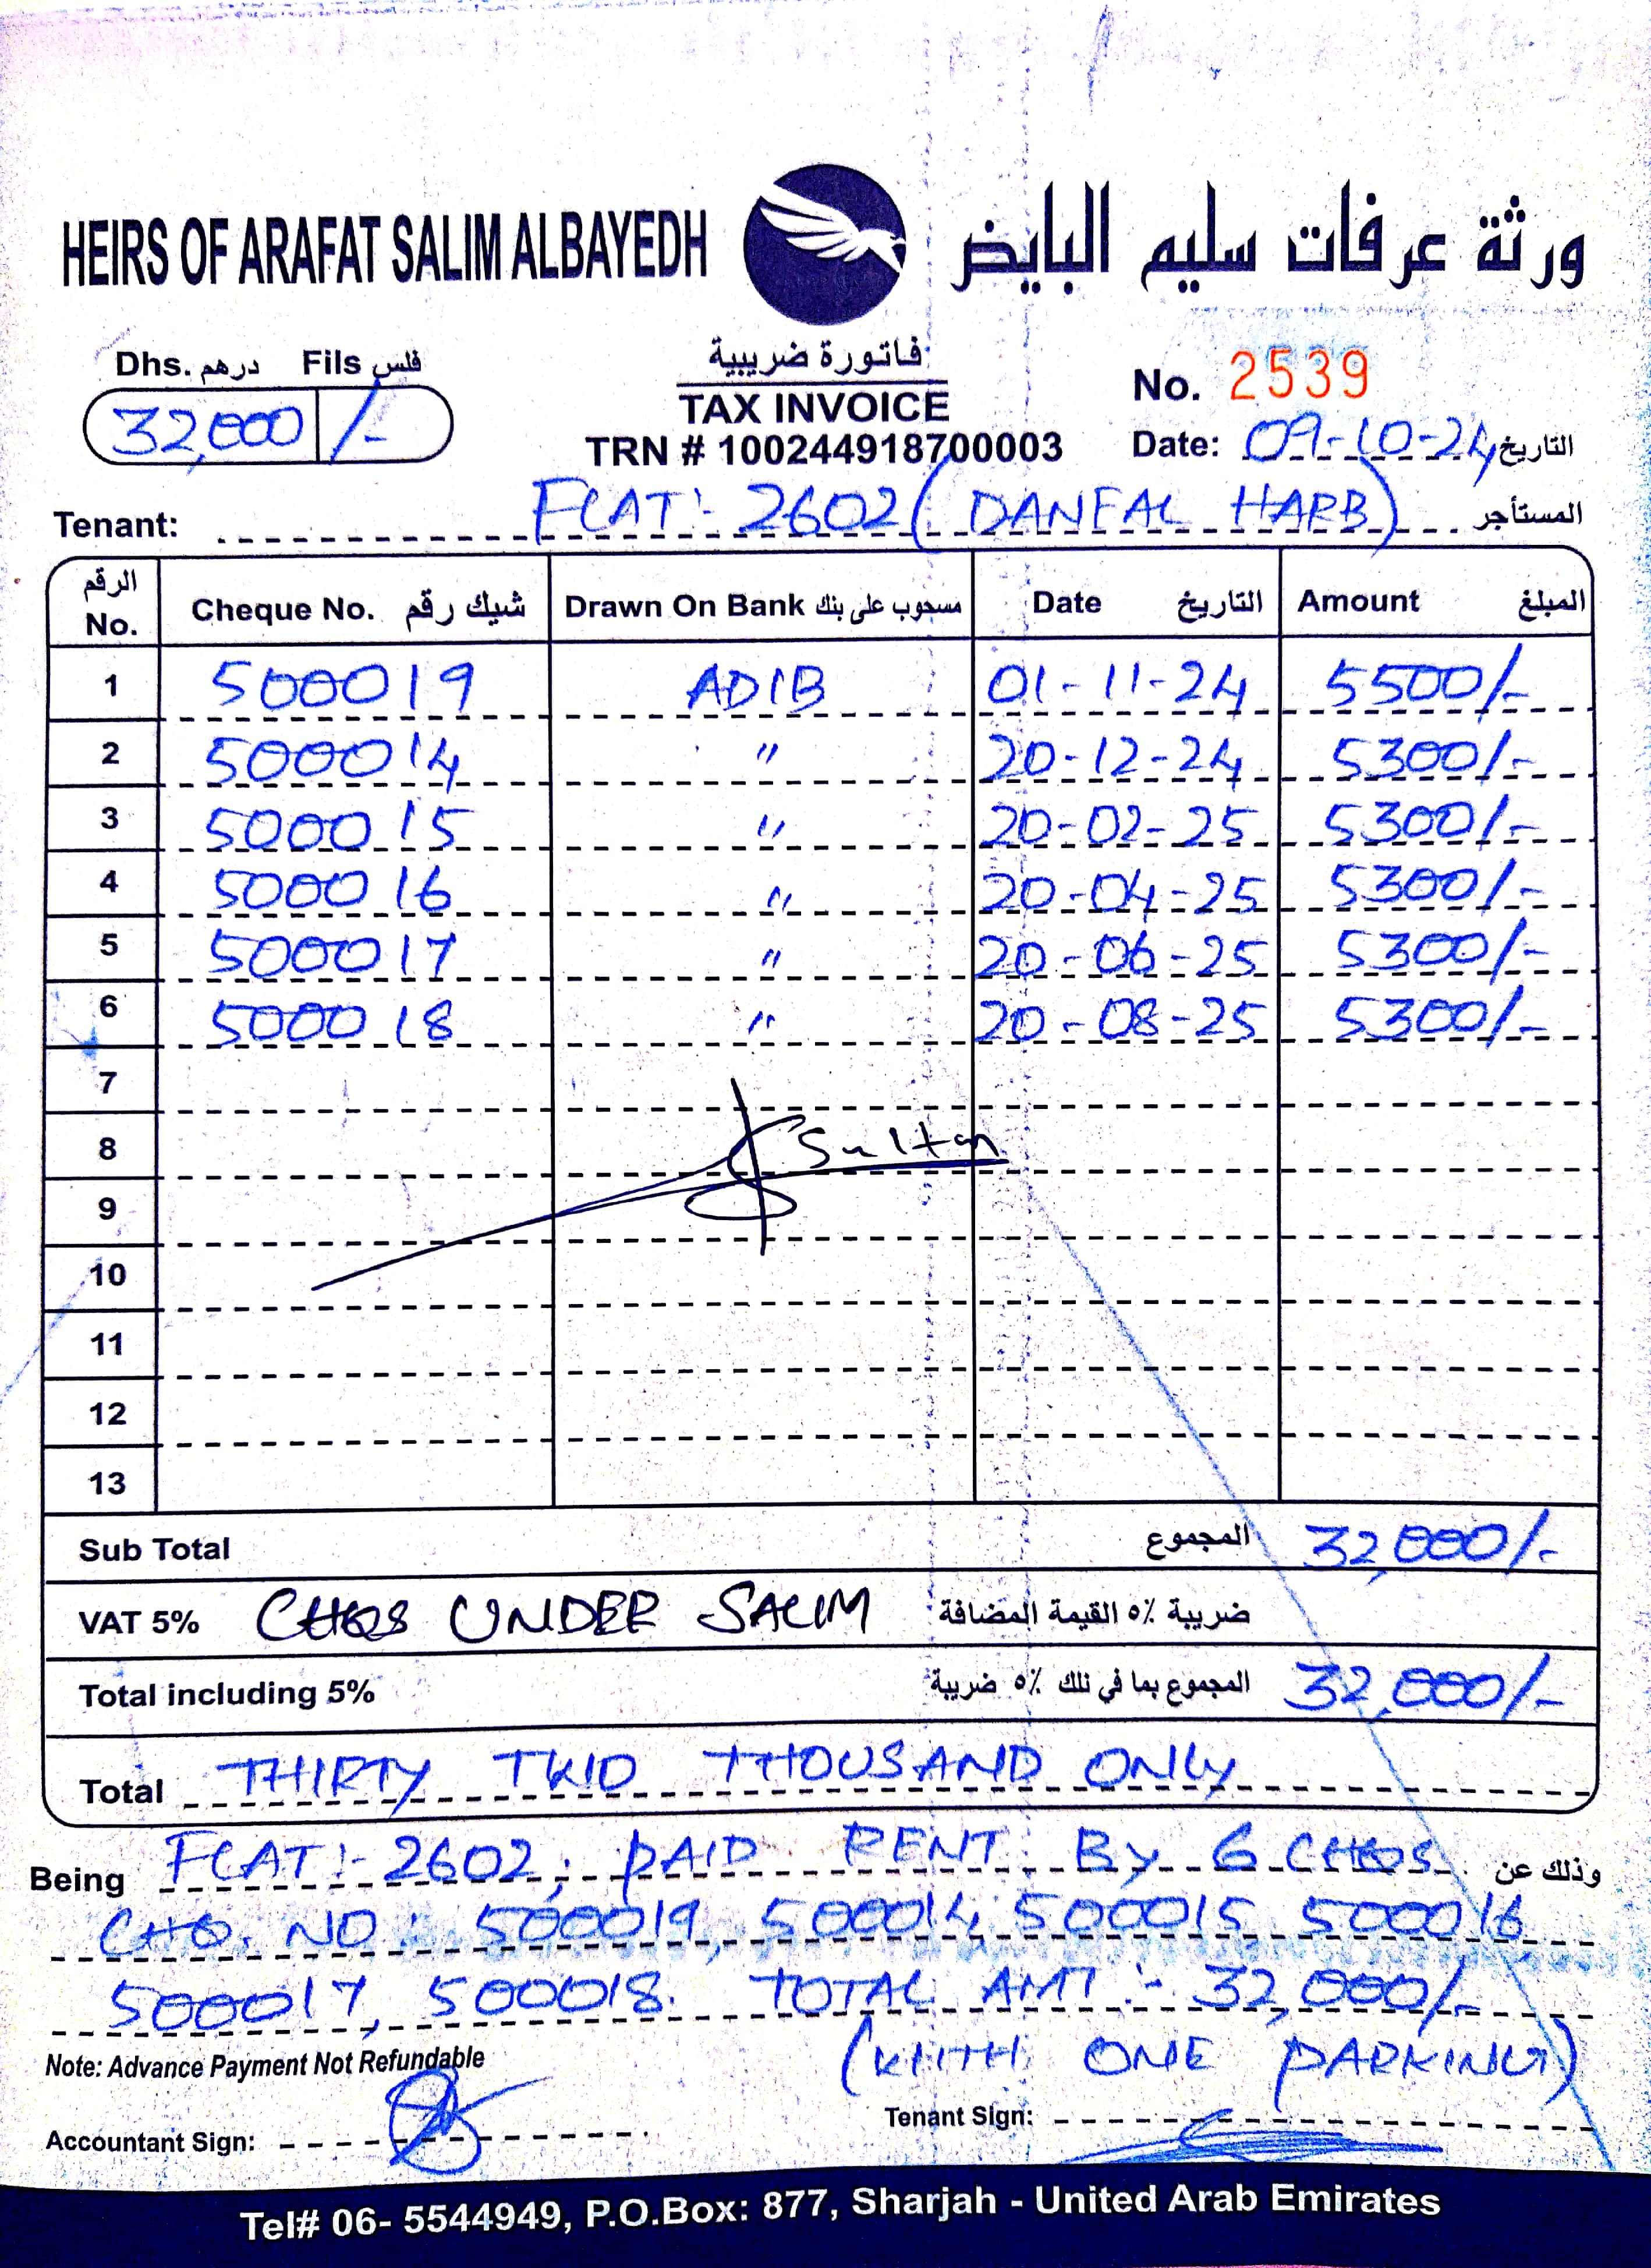 HEIRS OF ARAFAT SALIM ALBAYEDH ورثة عرفات سليم البايض
Dhs. درهم Fils فلس
32,000 /-
فاتورة ضريبية
TAX INVOICE
TRN # 100244918700003
No. 2539
Date: 09-10-24 التاريخ
Tenant: FLAT:- 2602 (DANFAL HARB) المستأجر
الرقم No. Cheque No. شيك رقم Drawn On Bank مسحوب على بنك Date التاريخ Amount المبلغ
1 500019 ADIB 01-11-24 5500/-
2 500014 " 20-12-24 5300/-
3 500015 " 20-02-25 5300/-
4 500016 " 20-04-25 5300/-
5 500017 " 20-06-25 5300/-
6 500018 " 20-08-25 5300/-
7
8 Sultan
9
10
11
12
13
Sub Total المجموع 32,000/-
VAT 5% CHQS UNDER SALIM ضريبة ٥٪ القيمة المضافة
Total including 5% المجموع بما في تلك ٥٪ ضريبة 32,000/-
Total THIRTY TWO THOUSAND ONLY
Being FLAT:- 2602, PAID RENT BY 6 CHQS وذلك عن
CHQ. NO: 500019, 500014, 500015, 500016,
500017, 500018. TOTAL AMT:- 32,000/-
Note: Advance Payment Not Refundable (WITH ONE PARKING)
Accountant Sign: Tenant Sign:
Tel# 06- 5544949, P.O.Box: 877, Sharjah - United Arab Emirates